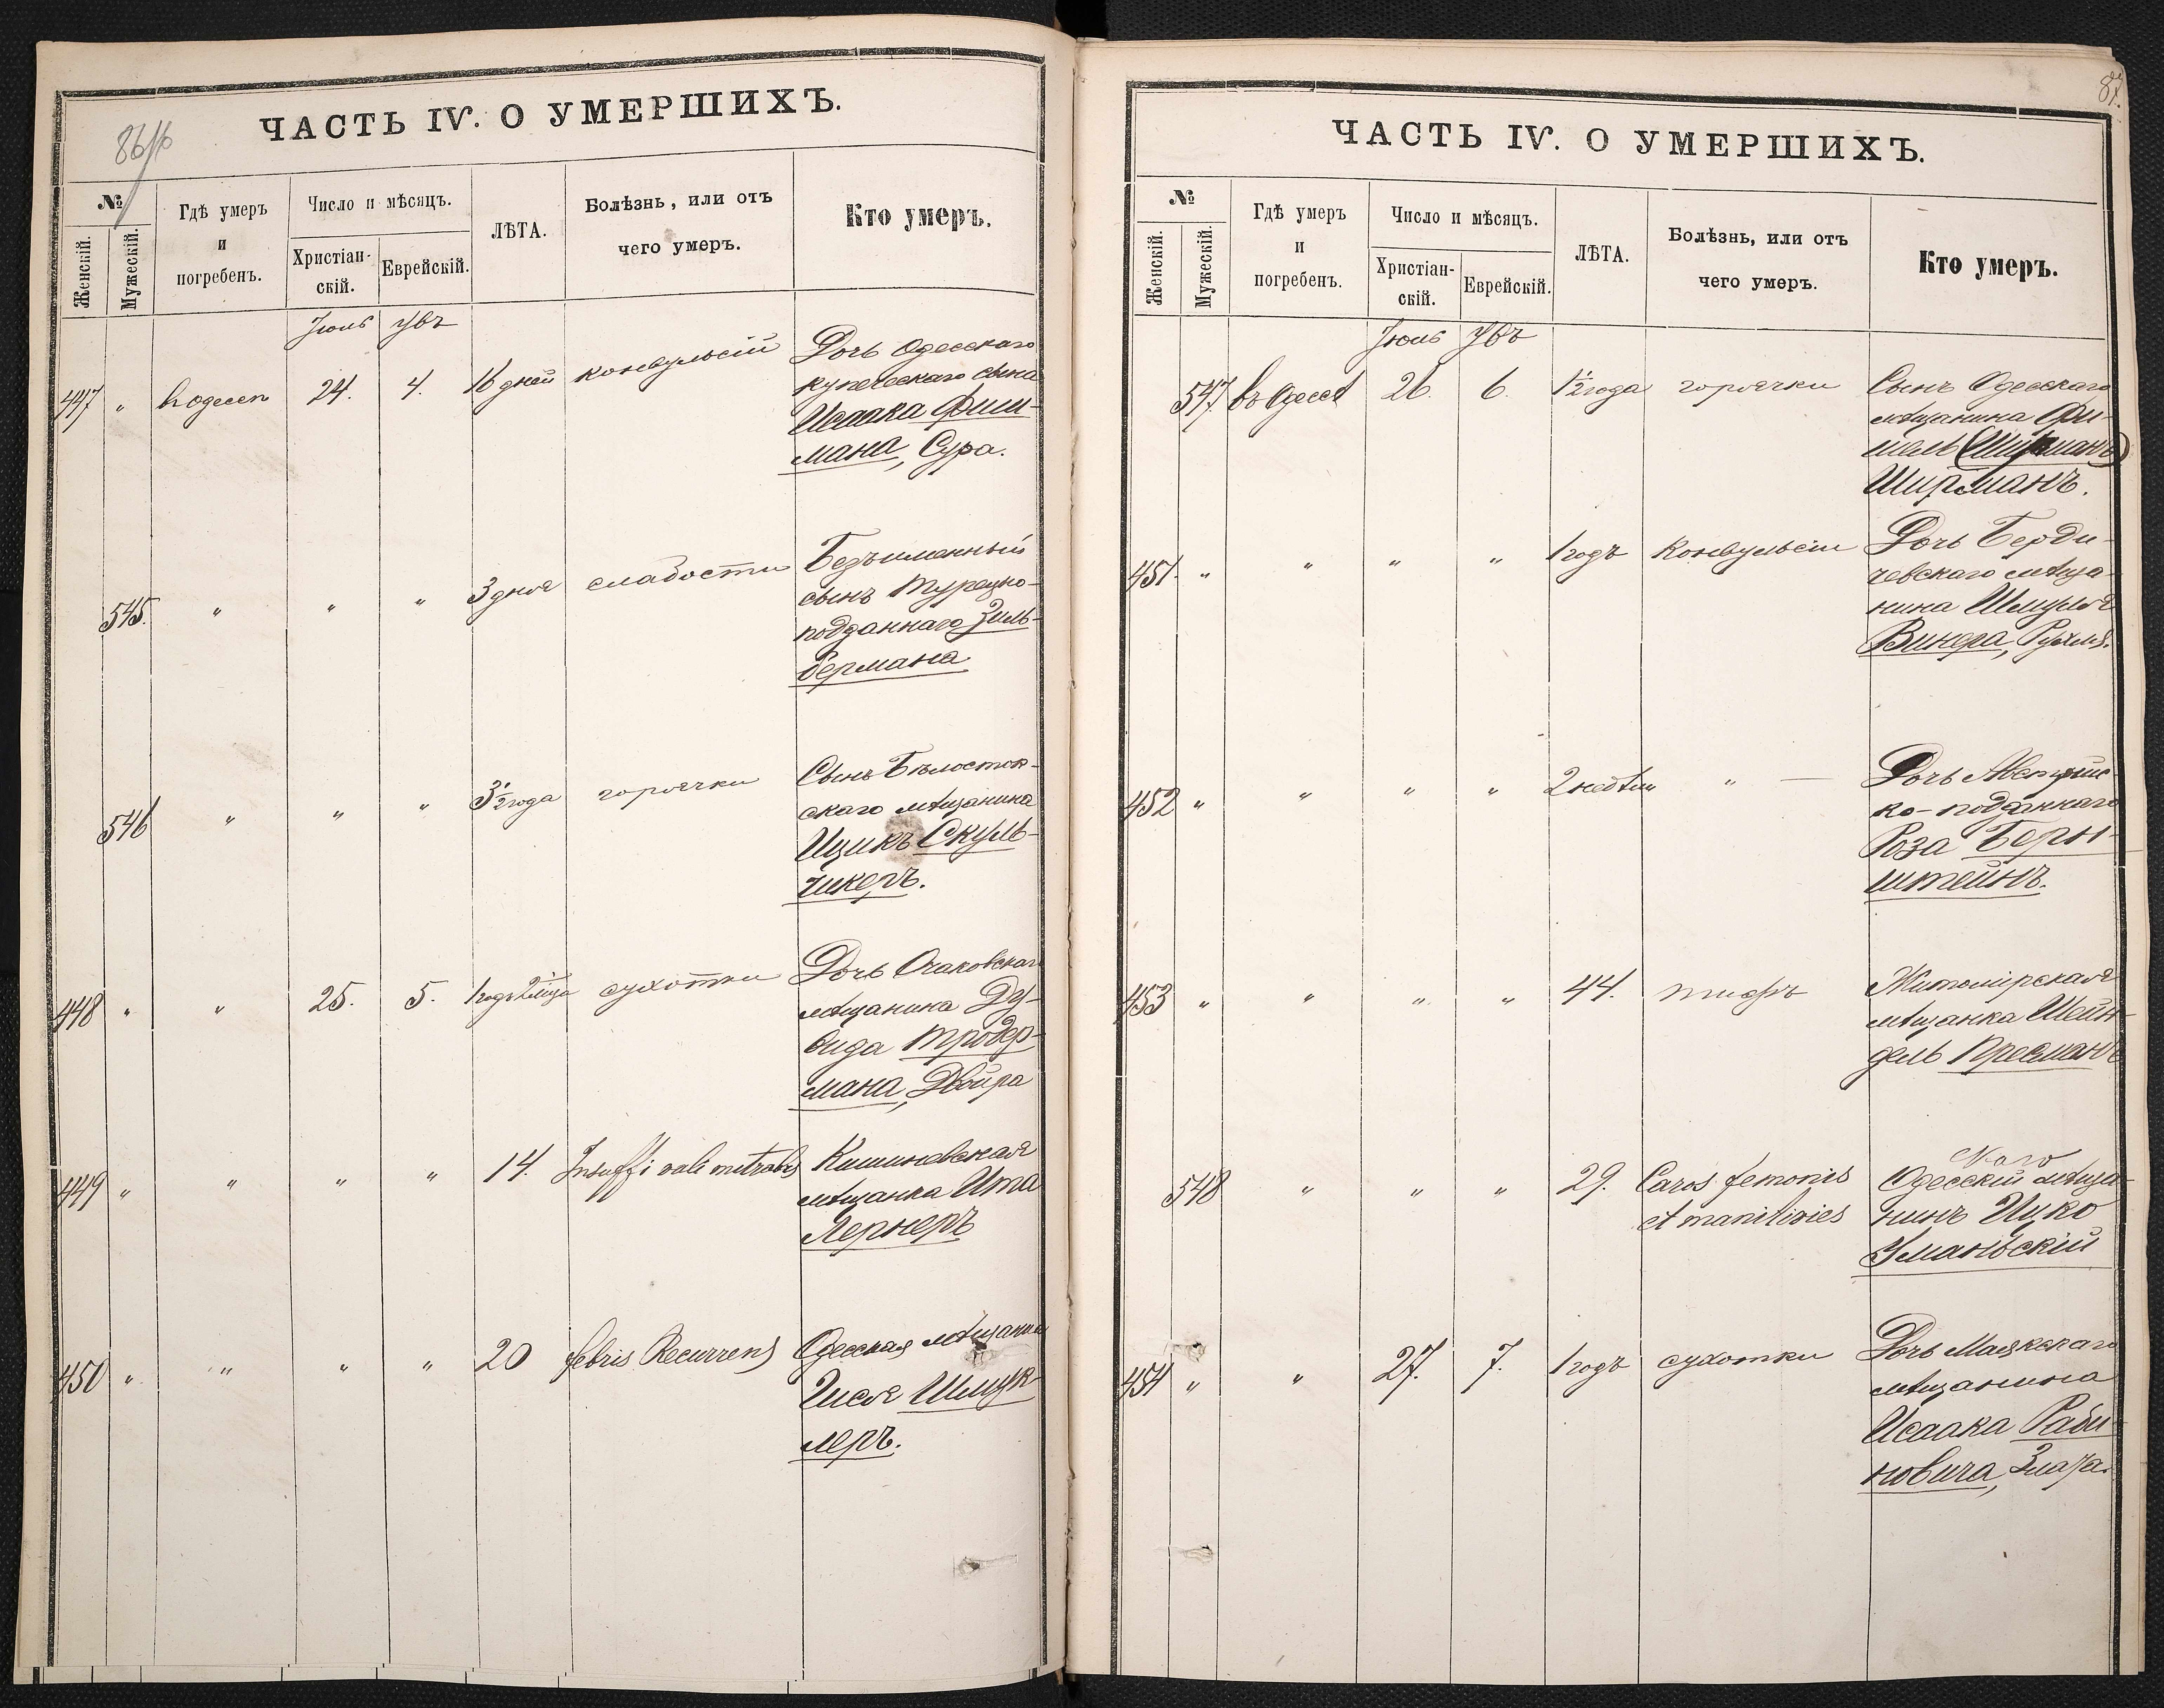 ЧАСТЬ IV. О УМЕРШИХЪ.
№
Женскій.
Мужескій.
Гдѣ умеръ
и
погребенъ.
Число и мѣсяцъ.
Христіан-
скій.
Еврейскій.
ЛѢТА.
Болѣзнь, или отъ
чего умеръ.
Кто умеръ.
Іюнь
447 " 24. 4. 16 дней конвульсій Дочь Одесскаго
купеческаго сына
Исаака Фиш-
мана, Сура.
545. " " " 3 дня слабости Безъименный
сынъ Турецко-
подданнаго Зиль-
бермана
546 " " " 3½ года горячки Сынъ Бѣлосток-
скаго мѣщанина
Ицикъ Скуль-
чикеръ.
448 " " 25. 5. сухотки Дочь Очаковскаго
мѣщанина Ду-
вида Тровер-
мана, Двойра
449 " " " " 14. Insuffi valv mitralis Кишиневская
мѣщанка Ита
Лернеръ
450 " " " " 20 febris Recurrens Одесская мѣщанка
Шмук-
леръ.
87.
ЧАСТЬ IV. О УМЕРШИХЪ.
№
Женскій.
Мужескій.
Гдѣ умеръ
и
погребенъ.
Число и мѣсяцъ.
Христіан-
скій.
Еврейскій.
ЛѢТА.
Болѣзнь, или отъ
чего умеръ.
Кто умеръ.
Іюнь
547. въ Одессѣ 26. 6. 1½ года горячки Сынъ Одесскаго
мѣщанина Фи-
шель
Ширманъ.
451. " " " " 1 годъ Конвульсіи Дочь Берди-
чевскаго мѣща-
нина Шмуля
Винера, Рухля.
452 " " " " 2 недѣли " — Дочь Австрійс-
ко-подданнаго
Роза Берн-
штейнъ.
453 " " " " 44. тифъ Житомірская
мѣщанка Шейн-
дель Пресманъ
548 " " " 29. Caros femoris Одесскій мѣща-
нинъ Ицко
Уманьскій
454 " " 27. 7. 1 годъ сухотки Дочь Маякскаго
мѣщанина
Исаака Раби-
новича, Злата.